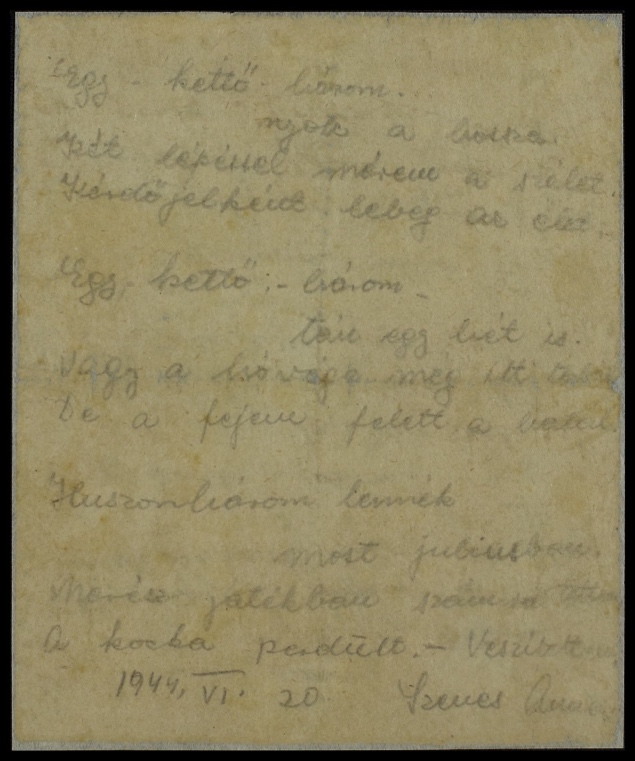 Egy - kettő - három...
nyolc a hossza.
Két lépéssel mérem a szélet.
Kérdőjelként lebeg az élet.
Egy, - kettő, - három -
tán egy hét is.
Vagy a hóvége még itt talál
De a fejem felett a halál.
Huszonhárom lennék
most juliusban.
Merész játékban számra tettem
A kocka perdült. - Vesztettem
1944. VI. 20 Szenes Anna